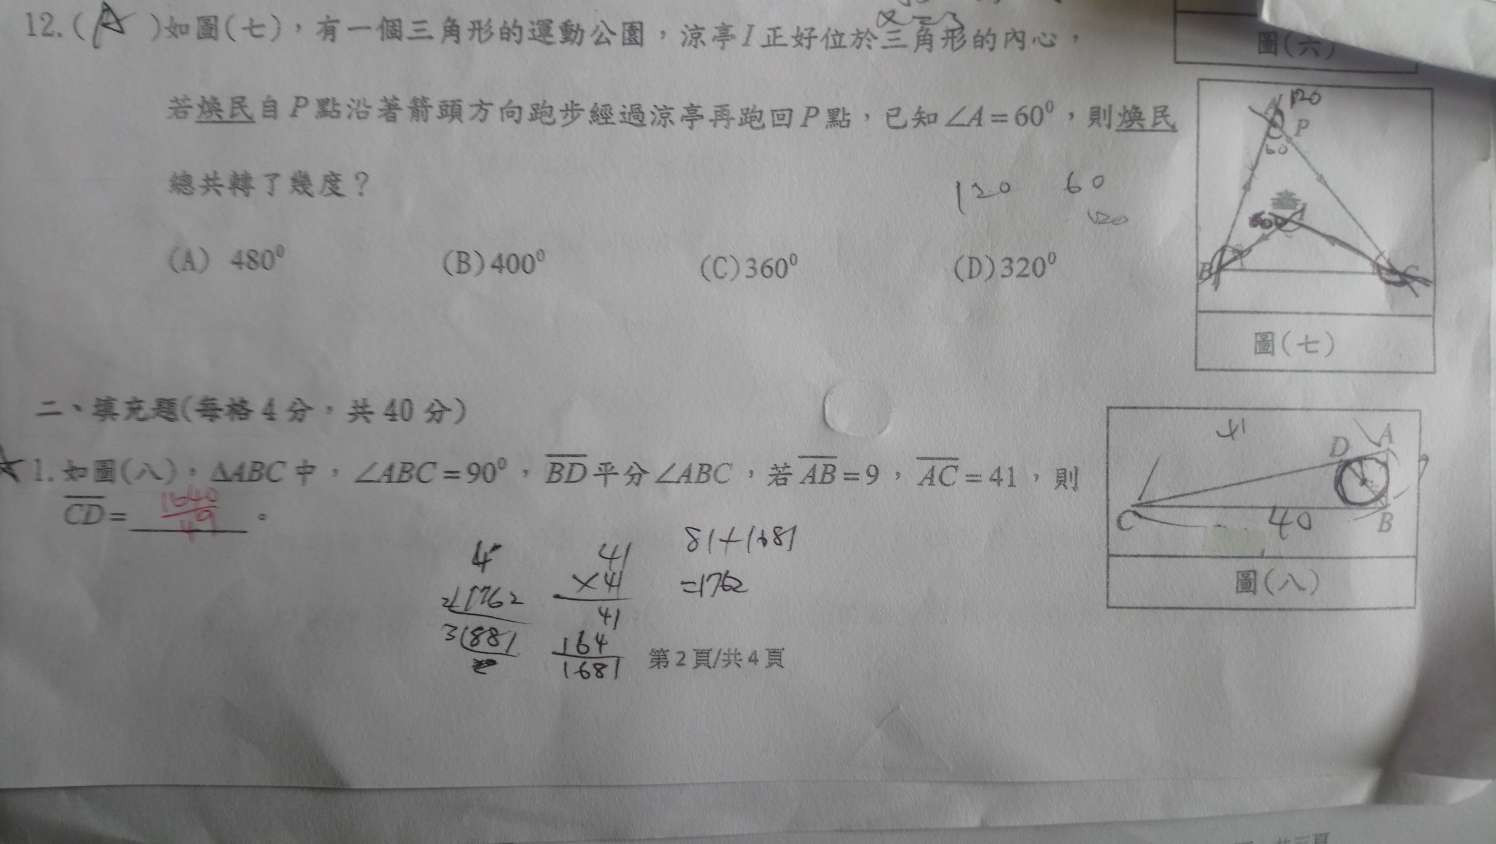 圖(六)
12.( A )如圖(七)，有一個三角形的運動公園，涼亭I正好位於三角形的內心，
若煥民自P點沿著箭頭方向跑步經過涼亭再跑回P點，已知∠A=60⁰，則煥民
總共轉了幾度？
120 60
120
(A) 480⁰ (B)400⁰ (C)360⁰ (D)320⁰
A 120
P
60
B C
圖(七)
二、填充題(每格4分，共40分)
1.如圖(八)，ΔABC中，∠ABC=90⁰，BD平分∠ABC，若AB=9，AC=41，則
CD= 1640/49 。
41
D A
9
C 40 B
圖(八)
81+1681
=1762
41
×41
41
164
1681
2 1762
3 881
第2頁/共4頁